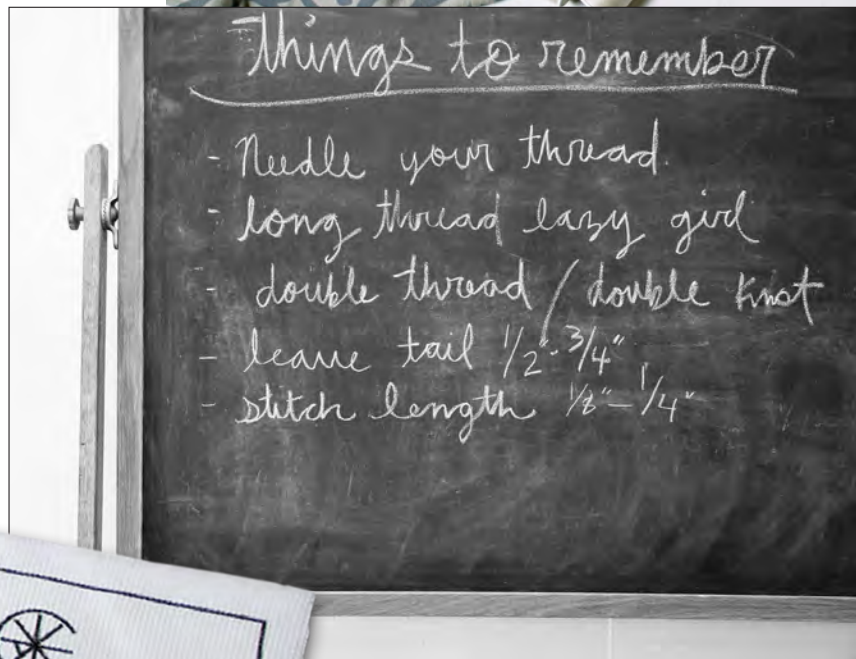 Things to remember
- Needle your thread.
- long thread lazy girl
- double thread / double knot
- leave tail 1/2"- 3/4"
- stitch length 1/8" - 1/4"